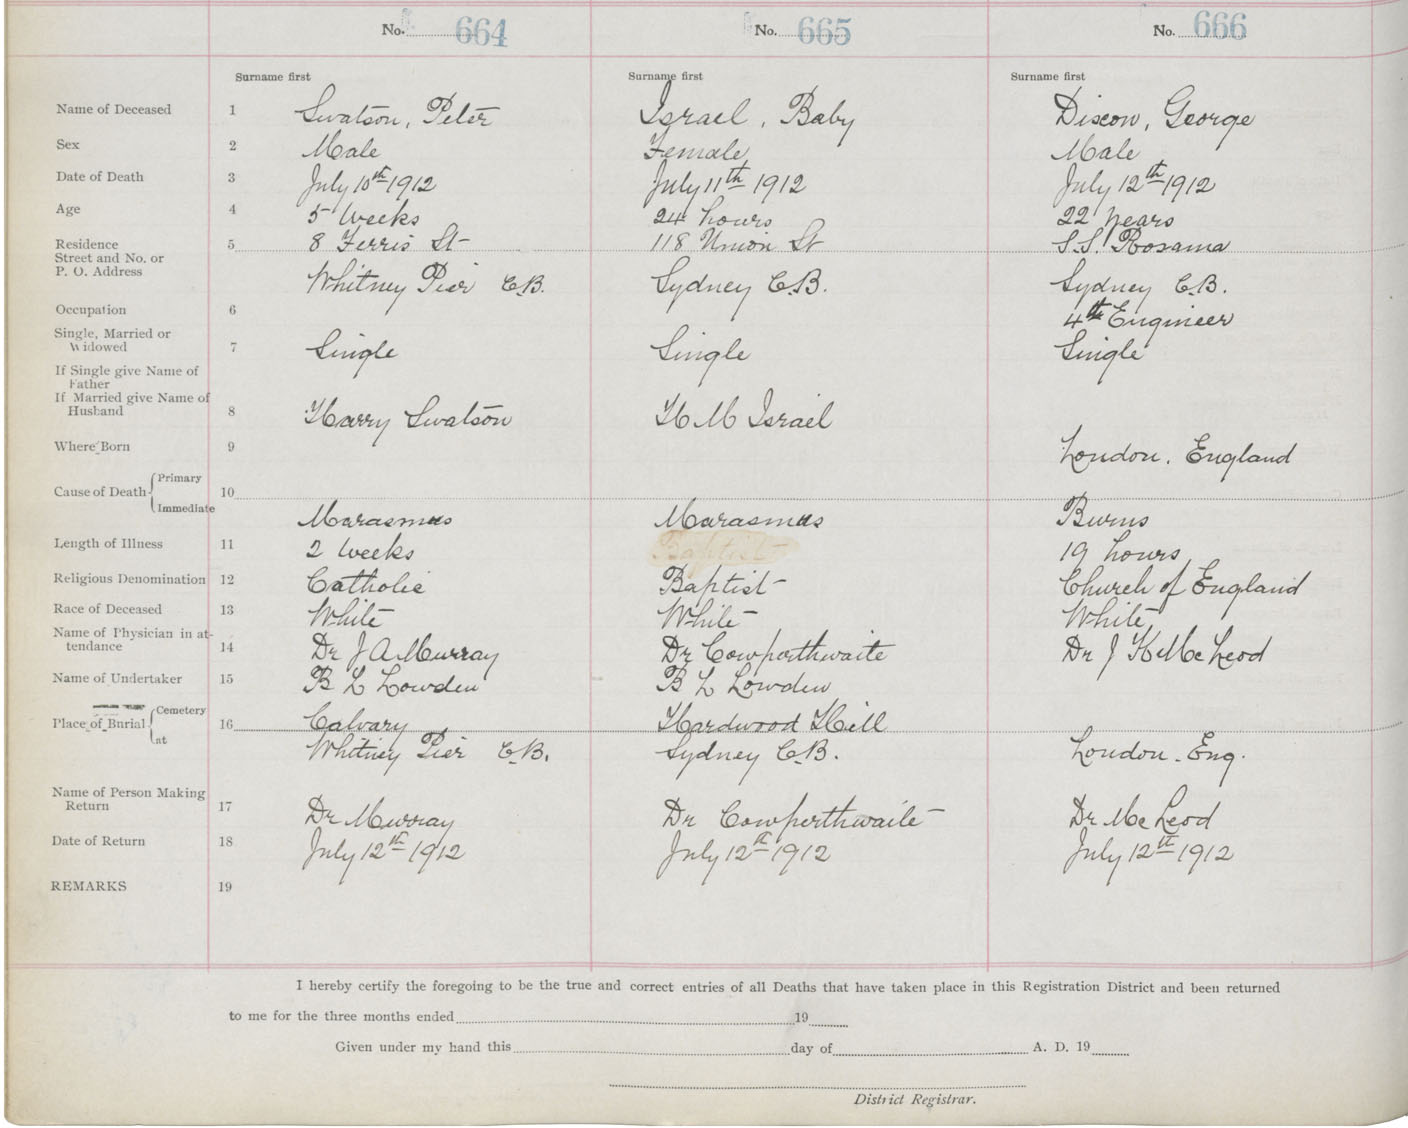 No. 664 No. 665 No. 666
Surname first Surname first Surname first
Name of Deceased 1 Swatson, Peter Israel, Baby Discon, George
Sex 2 Male Female Male
Date of Death 3 July 10th 1912 July 11th 1912 July 12th 1912
Age 4 5 Weeks 24 hours 22 years
Residence 5 8 Ferris St 118 Union St S.S. Rosama
Street and No. or
P. O. Address Whitney Pier C.B. Sydney C.B. Sydney C.B.
Occupation 6 4th Engineer
Single, Married or
Widowed 7 Single Single Single
If Single give Name of
Father
If Married give Name of
Husband 8 Harry Swatson H M Israel
Where Born 9 London. England
Cause of Death Primary
10
Immediate Marasmus Marasmus Burns
Length of Illness 11 2 Weeks Baptist 19 hours
Religious Denomination 12 Catholic Baptist Church of England
Race of Deceased 13 White White White
Name of Physician in at-
tendance 14 Dr J A Murray Dr Cowperthwaite Dr J K McLeod
Name of Undertaker 15 B L Lowden B L Lowden
Place of Burial Cemetery 16 Calvary Hardwood Hill
at Whitney Pier C.B. Sydney C.B. London. Eng.
Name of Person Making
Return 17 Dr Murray Dr Cowperthwaite Dr McLeod
Date of Return 18 July 12th 1912 July 12th 1912 July 12th 1912
REMARKS 19
I hereby certify the foregoing to be the true and correct entries of all Deaths that have taken place in this Registration District and been returned
to me for the three months ended 19
Given under my hand this day of A. D. 19
District Registrar.